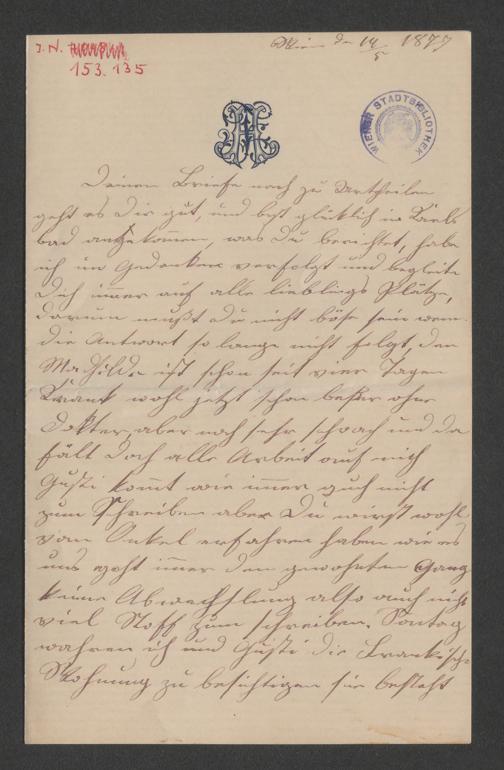 J. N.
153.135
Wien den 14/5 1877
WIENER STADTBIBLIOTHEK
Deinem Briefe nach zu Urtheilen
geht es Dir gut, und bist glüklich in
bad angekommen, was Du berichtet, habe
ich in Gedanken verfolgt und begleite
Dich immer auf alle lieblings Plätze,
darum mußt du nicht böse sein wenn
die Antwort so lange nicht folgt, den
Mathilde ist schon seit vier Tagen
Krank wohl jetzt schon beßer ohne
Dokter, aber noch sehr schwach und da
fält doch alle Arbeit auf mich
Gusti kommt wie immer auch nicht
zum Schreiben aber Du wirst wohl
vom Onkel erfahren haben wie es
uns geht immer den gewohnten Gang
keine Abwechslung also auch nicht
viel Stoff zum schreiben. Sontag
wahren ich und Gusti die
Wohnung zu besichtigen sie besteht